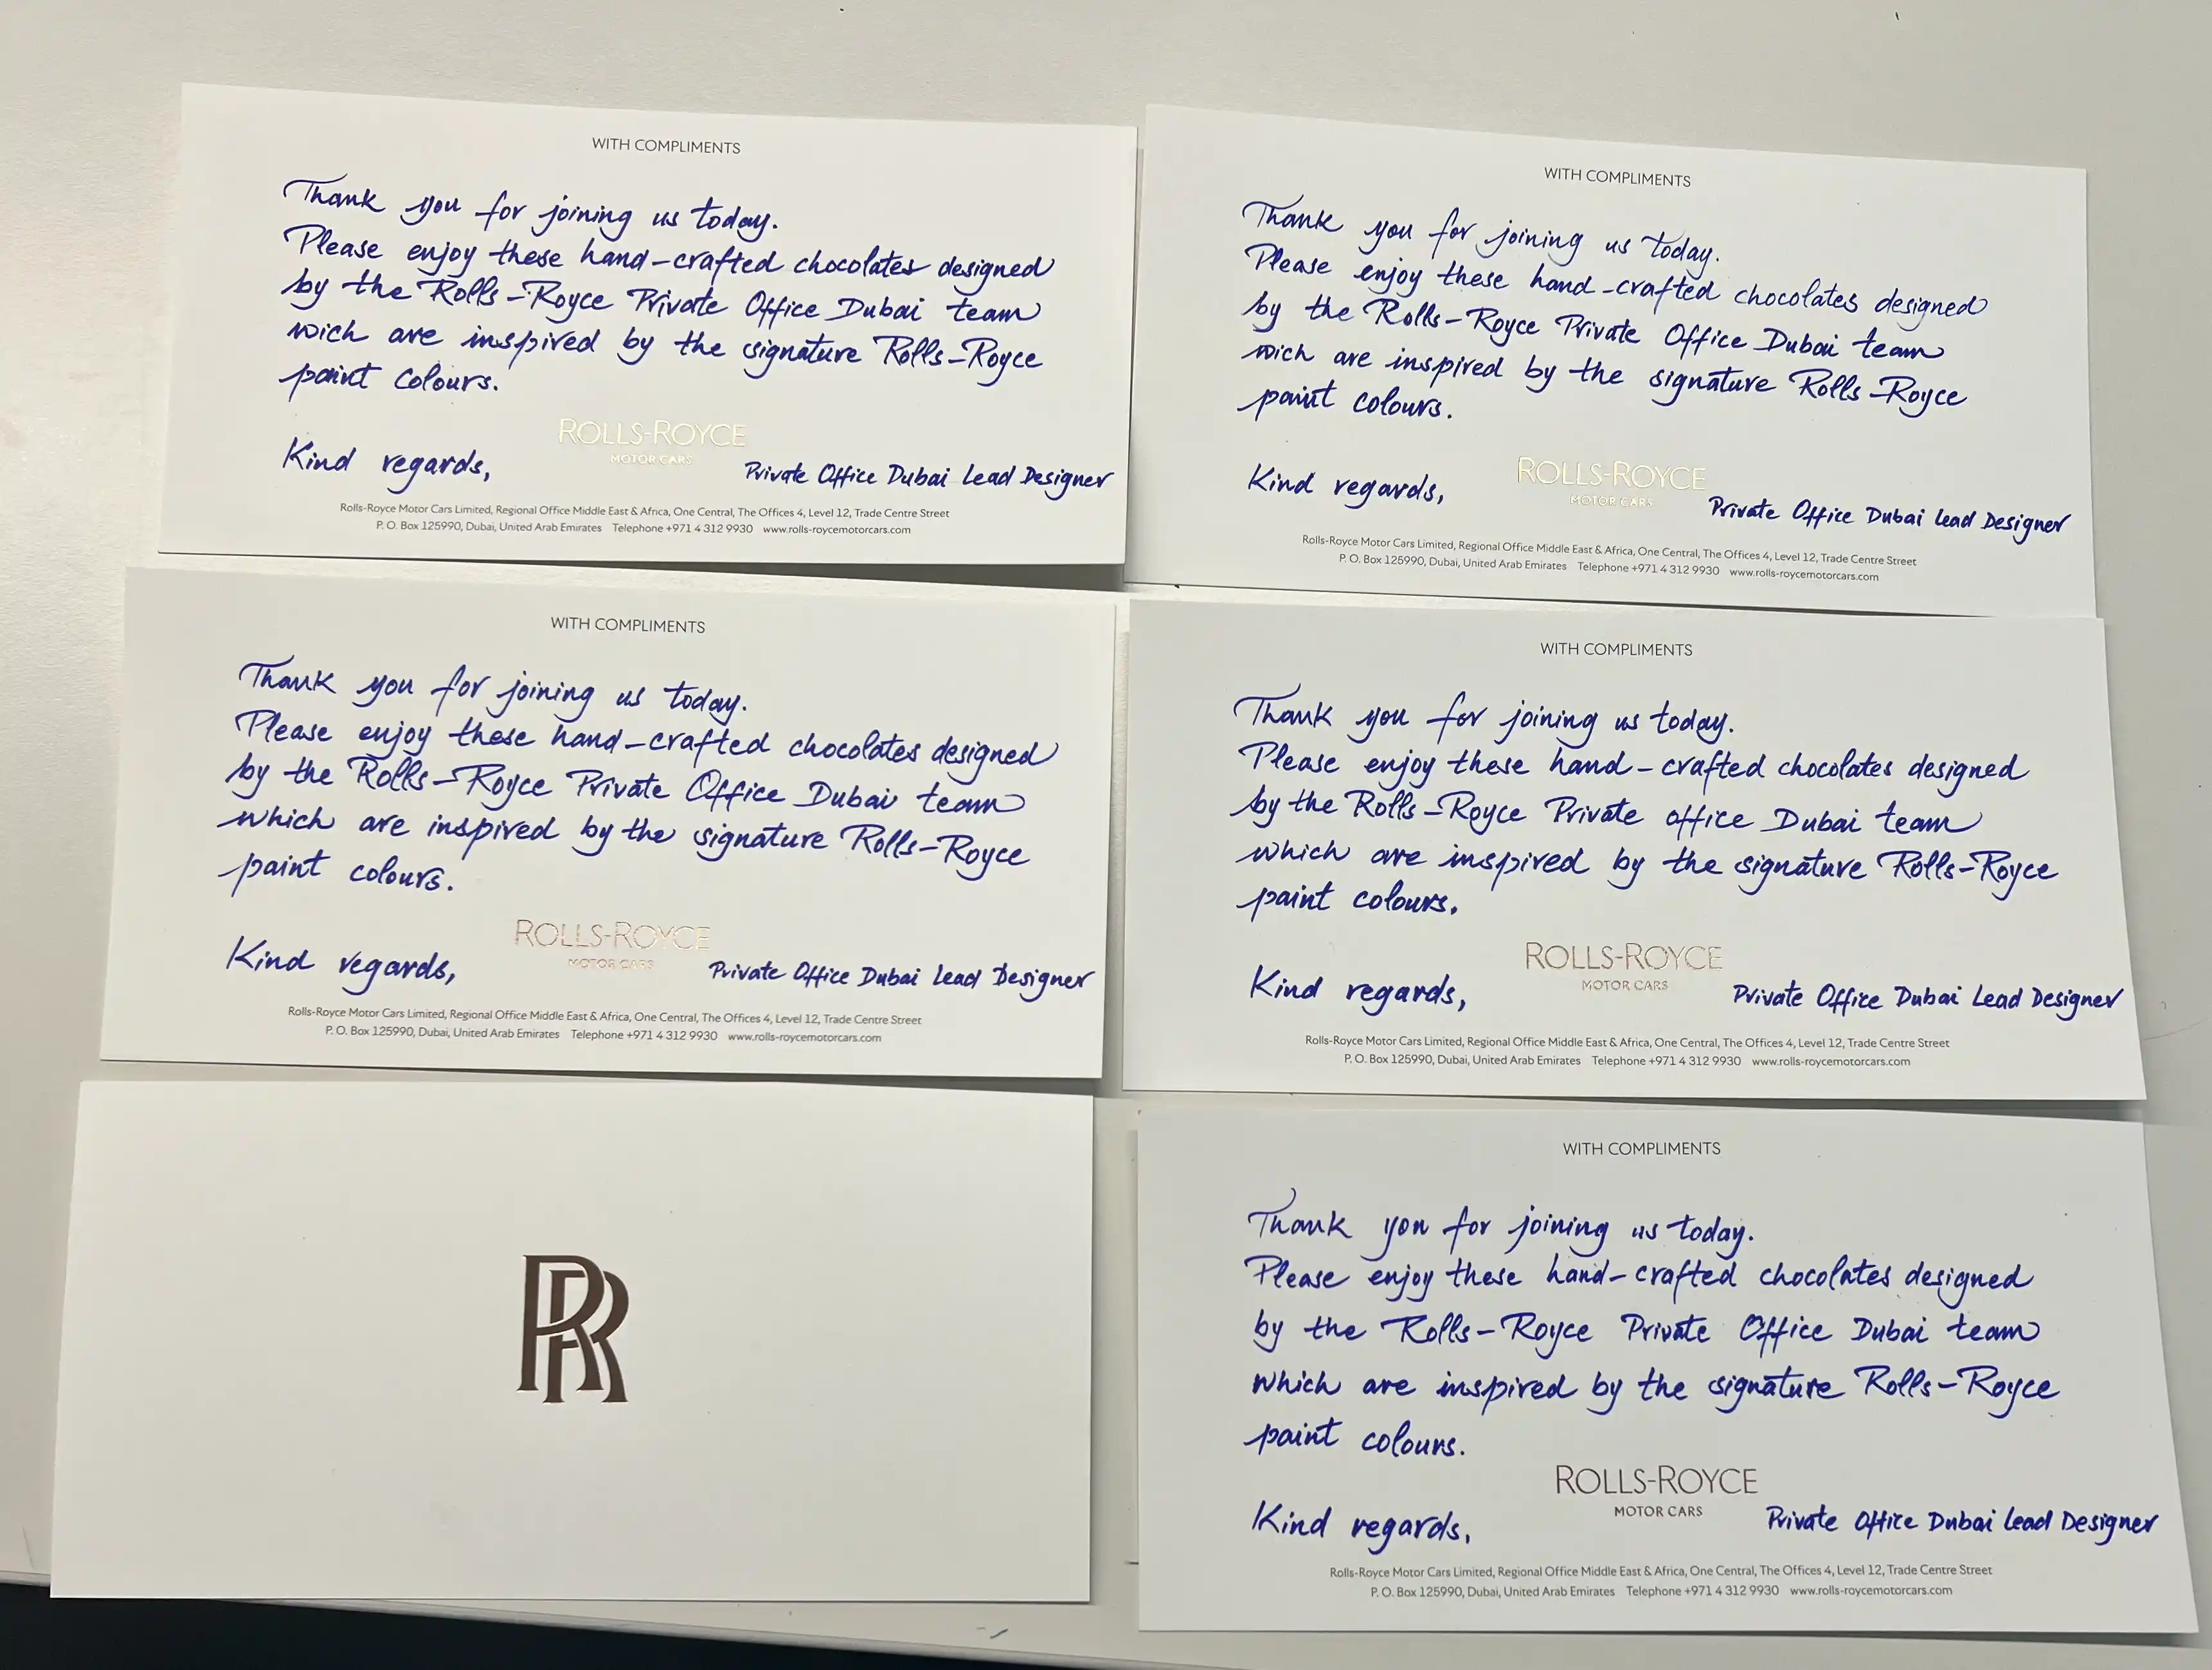 WITH COMPLIMENTS
Thank you for joining us today.
Please enjoy these hand-crafted chocolates designed
by the Rolls-Royce Private Office Dubai team
wich are inspired by the signature Rolls-Royce
paint colours.
ROLLS-ROYCE
MOTOR CARS
Kind regards,
Private Office Dubai Lead Designer
Rolls-Royce Motor Cars Limited, Regional Office Middle East & Africa, One Central, The Offices 4, Level 12, Trade Centre Street
P. O. Box 125990, Dubai, United Arab Emirates Telephone +971 4 312 9930 www.rolls-roycemotorcars.com
WITH COMPLIMENTS
Thank you for joining us today.
Please enjoy these hand-crafted chocolates designed
by the Rolls-Royce Private Office Dubai team
wich are inspired by the signature Rolls-Royce
paint colours.
ROLLS-ROYCE
MOTOR CARS
Kind regards,
Private Office Dubai Lead Designer
Rolls-Royce Motor Cars Limited, Regional Office Middle East & Africa, One Central, The Offices 4, Level 12, Trade Centre Street
P. O. Box 125990, Dubai, United Arab Emirates Telephone +971 4 312 9930 www.rolls-roycemotorcars.com
WITH COMPLIMENTS
Thank you for joining us today.
Please enjoy these hand-crafted chocolates designed
by the Rolls-Royce Private Office Dubai team
which are inspired by the signature Rolls-Royce
paint colours.
ROLLS-ROYCE
MOTOR CARS
Kind regards,
Private Office Dubai Lead Designer
Rolls-Royce Motor Cars Limited, Regional Office Middle East & Africa, One Central, The Offices 4, Level 12, Trade Centre Street
P. O. Box 125990, Dubai, United Arab Emirates Telephone +971 4 312 9930 www.rolls-roycemotorcars.com
WITH COMPLIMENTS
Thank you for joining us today.
Please enjoy these hand-crafted chocolates designed
by the Rolls-Royce Private office Dubai team
which are inspired by the signature Rolls-Royce
paint colours.
ROLLS-ROYCE
MOTOR CARS
Kind regards,
Private Office Dubai Lead Designer
Rolls-Royce Motor Cars Limited, Regional Office Middle East & Africa, One Central, The Offices 4, Level 12, Trade Centre Street
P. O. Box 125990, Dubai, United Arab Emirates Telephone +971 4 312 9930 www.rolls-roycemotorcars.com
RR
WITH COMPLIMENTS
Thank you for joining us today.
Please enjoy these hand-crafted chocolates designed
by the Rolls-Royce Private Office Dubai team
which are inspired by the signature Rolls-Royce
paint colours.
ROLLS-ROYCE
MOTOR CARS
Kind regards,
Private Office Dubai Lead Designer
Rolls-Royce Motor Cars Limited, Regional Office Middle East & Africa, One Central, The Offices 4, Level 12, Trade Centre Street
P. O. Box 125990, Dubai, United Arab Emirates Telephone +971 4 312 9930 www.rolls-roycemotorcars.com